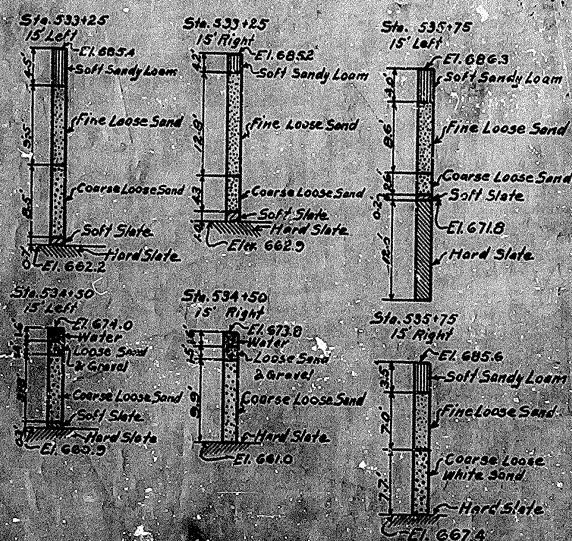 Sta. 533+25
15' Left
El. 685.4
Soft Sandy Loam
4.5'
Fine Loose Sand
Coarse Loose Sand
8.5'
Soft Slate
Hard Slate
El. 662.2
Sta. 533+25
15' Right
El. 685.2
Soft Sandy Loam
Fine Loose Sand
12.9'
Coarse Loose Sand
4.3
Soft Slate
Hard Slate
Elev. 662.9
Sta. 535+75
15' Left
El. 686.3
Soft Sandy Loam
Fine Loose Sand
8.6'
Coarse Loose Sand
Soft Slate
El. 671.8
Hard Slate
Sta. 534+50
15' Left
El. 674.0
Water
Loose Sand
& Gravel
Coarse Loose Sand
Soft Slate
Hard Slate
Sta. 534+50
15' Right
El. 673.8
Water
Loose Sand
& Gravel
Coarse Loose Sand
Hard Slate
El. 661.0
Sta. 535+75
15' Right
El. 685.6
3.5'
Soft Sandy Loam
7.0'
Fine Loose Sand
Coarse Loose
White Sand
7.7'
Hard Slate
El. 667.4